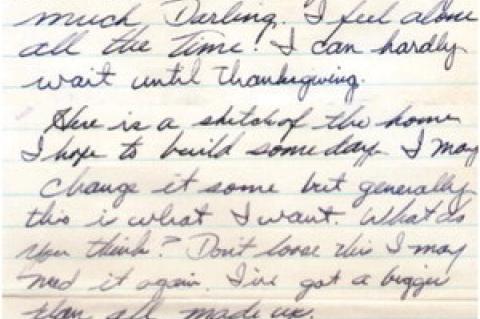 much Darling. I feel alone
all the time! I can hardly
wait until Thanksgiving.
Here is a sketch of the home
I hope to build someday. I may
change it some but generally
this is what I want. What do
you think? Don't loose this I may
need it again. I've got a bigger
plan all made up.